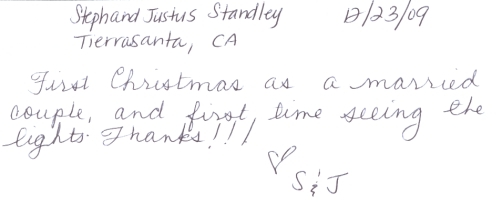 Steph and Justus Standley 12/23/09
Tierrasanta, CA
First Christmas as a married
couple, and first time seeing the
lights. Thanks!!!
♡ S & J